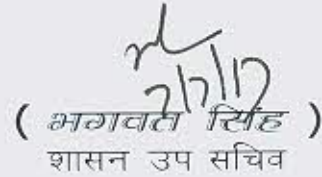 7/7/17
( भगवत सिंह )
शासन उप सचिव